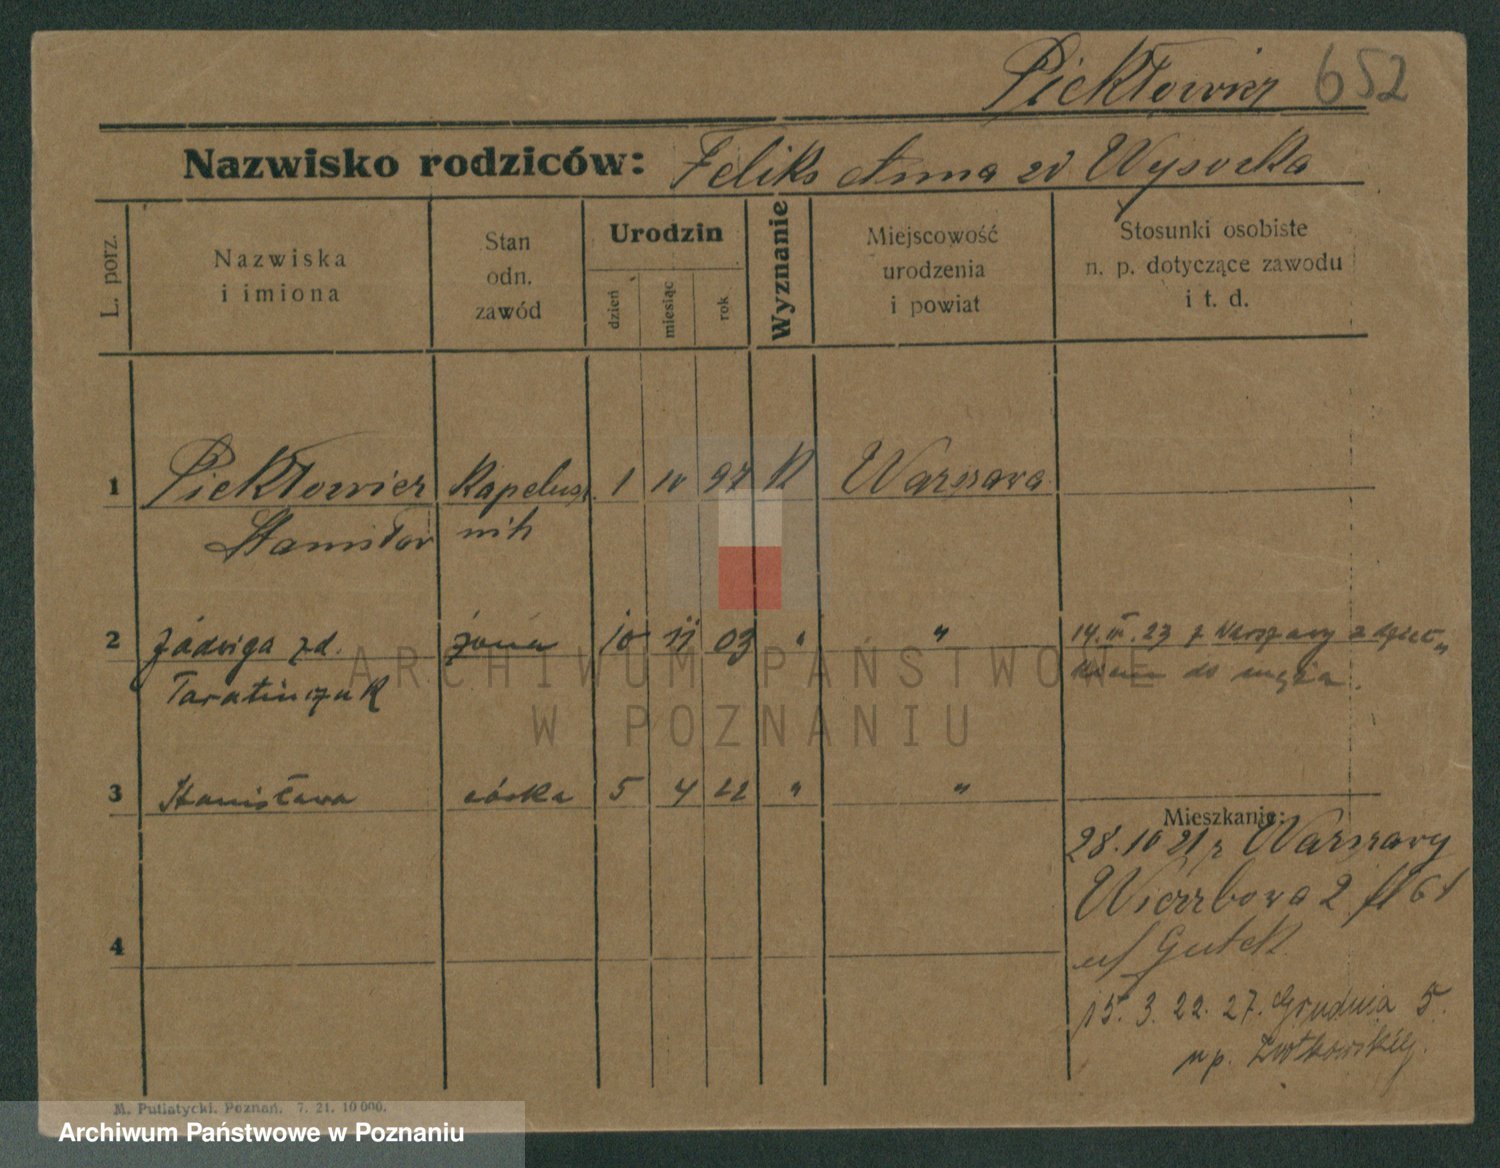 Piekłowicz 652
Nazwisko rodziców: Feliks Anna zd Wysocka
L. porz.
Nazwiska
i imiona
Stan
odn.
zawód
Urodzin
dzień
miesiąc
rok
Wyznanie
Miejscowość
urodzenia
i powiat
Stosunki osobiste
n. p. dotyczące zawodu
i t. d.
1 Piekłowicz Kapelusz 1 10 97 K Warszawa
Stanisław nik
2 Jadwiga zd. żona 10 11 03 " " 14. III. 23 z Warszawy z
Taratinczuk do męża.
3 Stanisława córka 5 4 22 " "
Mieszkanie:
28.10 21 z Warszawy
Wierzbowa 2
u/ Gutek
4
15. 3. 22. 27. Grudnia 5.
u p.
M. Putiatycki. Poznań. 7. 21. 10 000.
ARCHIWUM PAŃSTWOWE
W POZNANIU
Archiwum Państwowe w Poznaniu